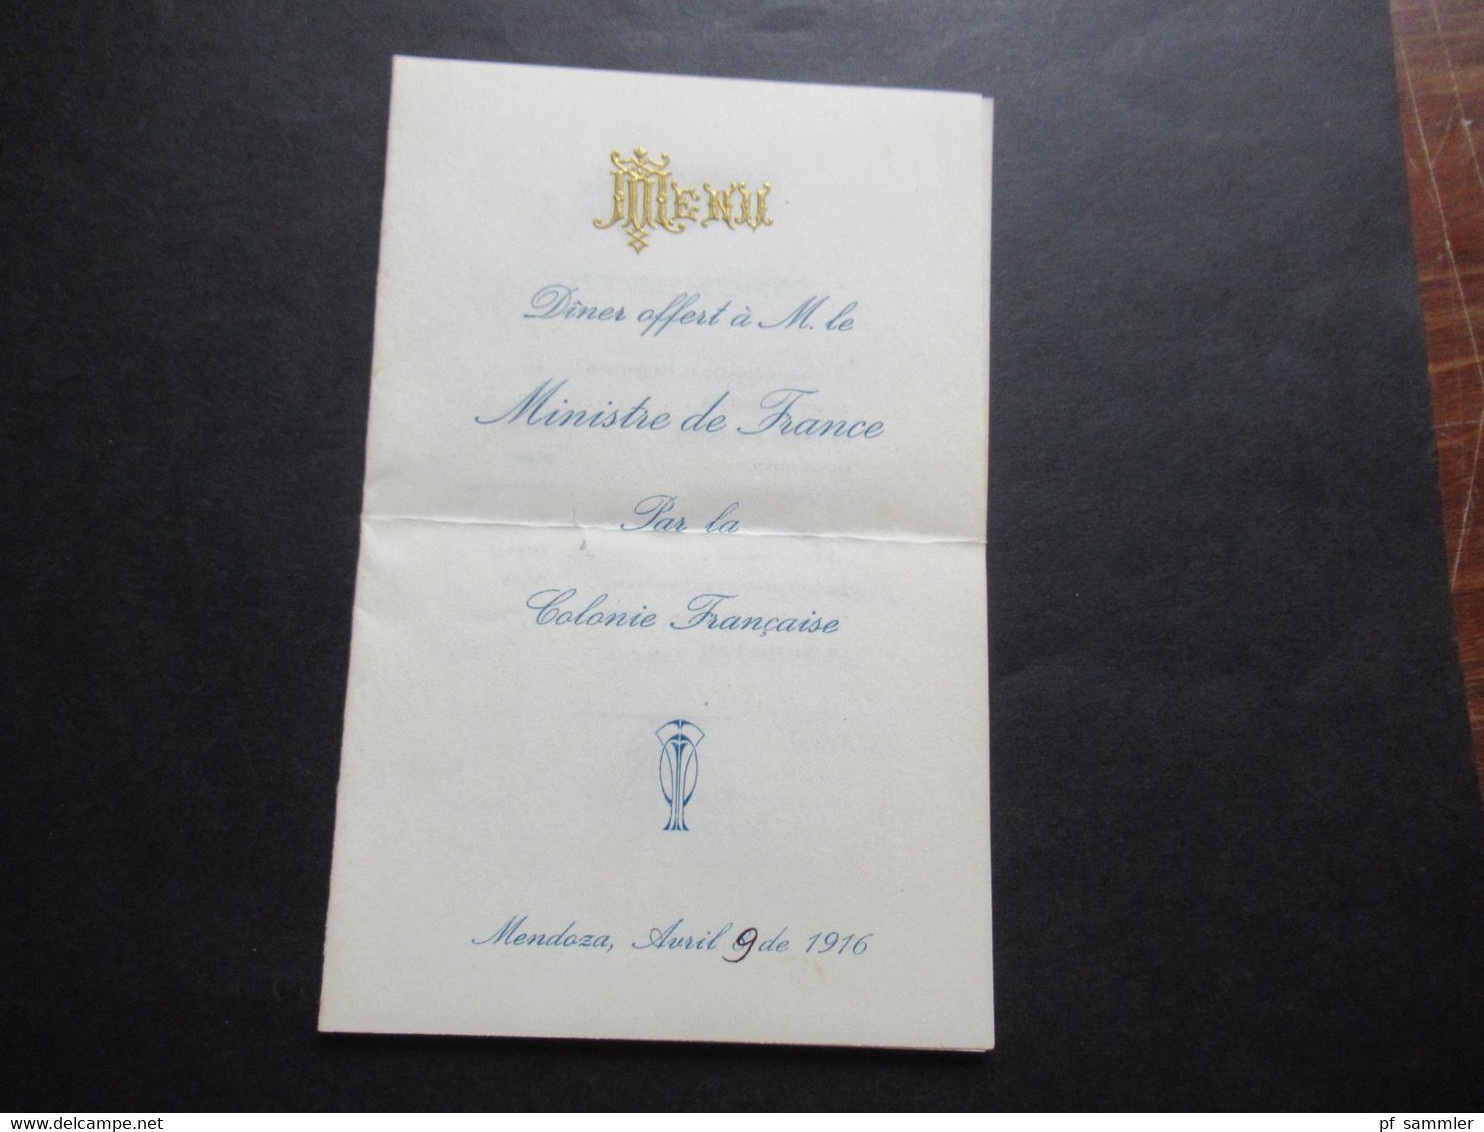 MENU
Dîner offert à M. le
Ministre de France
Par la
Colonie Française
Mendoza, Avril 9 de 1916
www.delcampe.net
pf_sammler